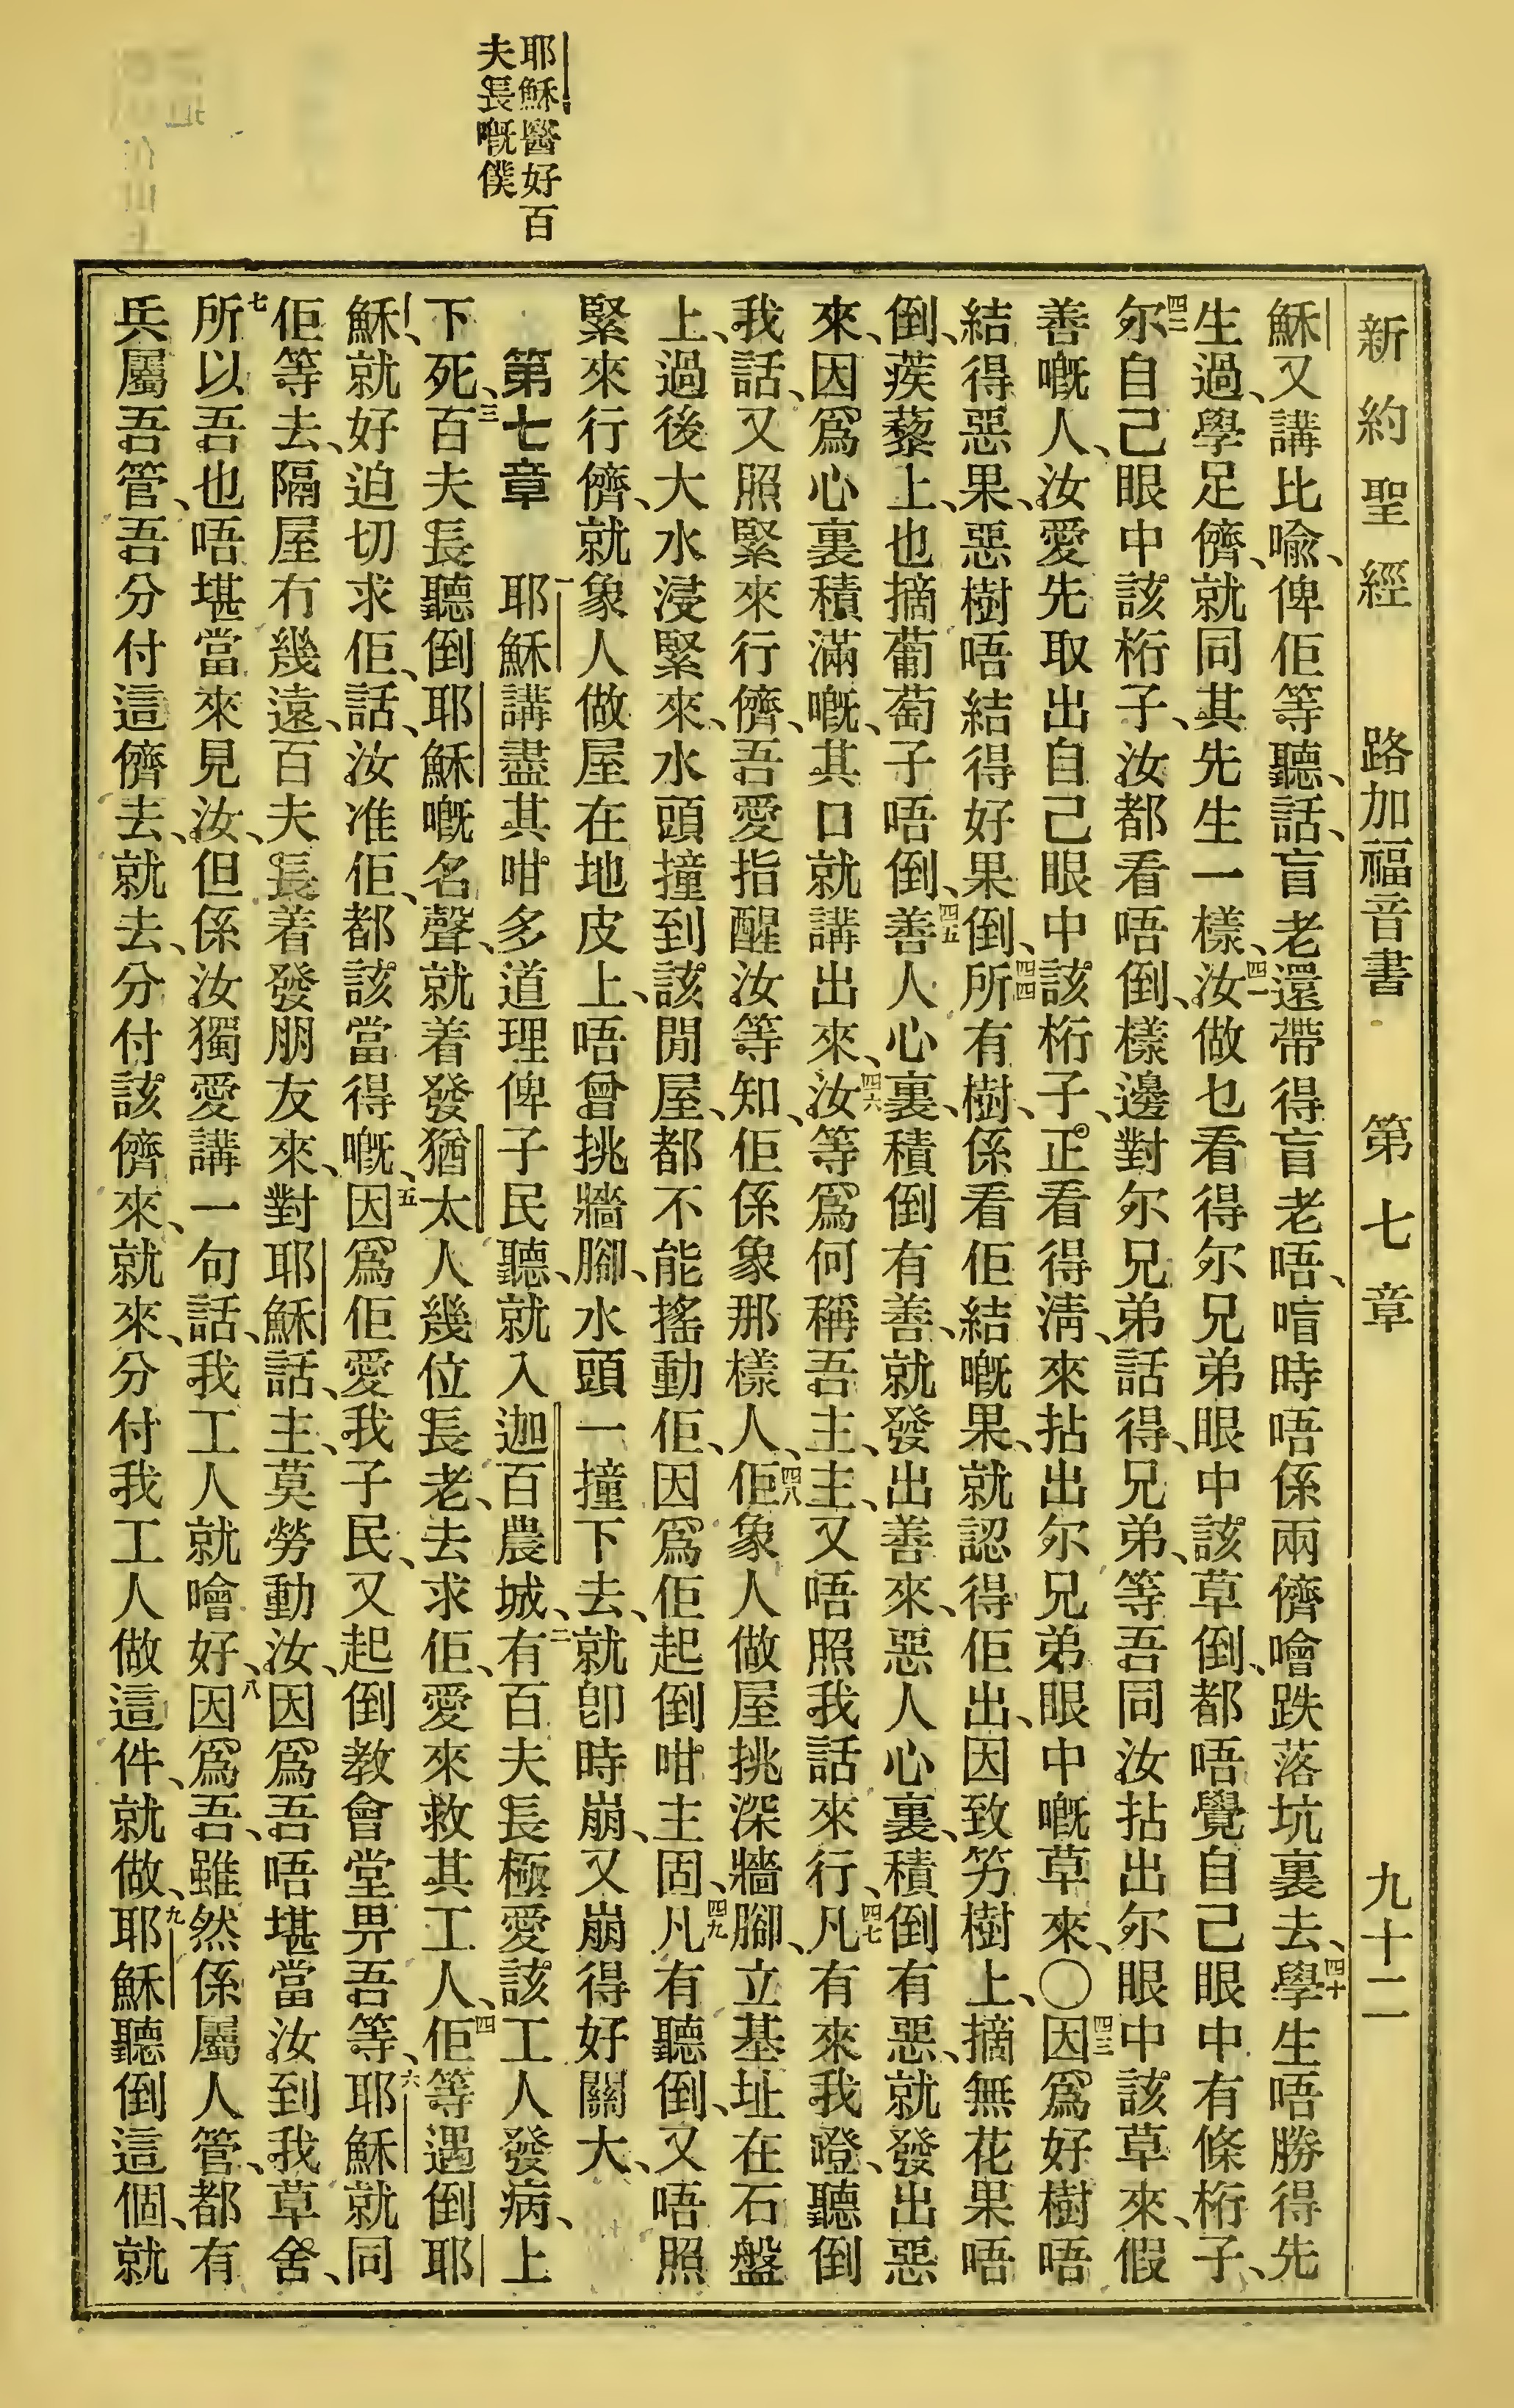 耶穌醫好百
夫長嘅僕
新約聖經 路加福音書 第七章 九十二
穌又講比喩、俾佢等聽、話、盲老還帶得盲老唔、唔時唔係兩儕噲跌落坑裏去、四十學生唔勝得先
生過、學足儕、就同其先生一樣、四一汝做乜看得尔兄弟眼中該草倒、都唔覺自己眼中有條桁子、
四二尔自己眼中該桁子、汝都看唔倒、樣邊對尔兄弟話得、兄弟、等吾同汝拈出尔眼中該草來、假
善嘅人、汝愛先取出自己眼中該桁子、正看得淸、來拈出尔兄弟眼中嘅草來、○四三因爲好樹唔
結得惡果、惡樹唔結得好果倒、四四所有樹、係看佢結嘅果、就認得佢出、因致竻樹上、摘無花果唔
倒、蒺藜上、也摘葡萄子唔倒、四五善人心裏、積倒有善、就發出善來、惡人心裏、積倒有惡、就發出惡
來、因爲心裏積滿嘅、其口就講出來、四六汝等爲何稱吾主、主、又唔照我話來行、四七凡有來我嶝、聽倒
我話、又照緊來行儕、吾愛指醒汝等知、佢係象那樣人、四八佢象人做屋挑深牆腳、立基址在石盤
上、過後大水浸緊來、水頭撞到該間屋、都不能搖動佢、因爲佢起倒咁主固、四九凡有聽倒、又唔照
緊來行儕、就象人做屋在地皮上、唔曾挑牆腳、水頭一撞下去、就卽時崩、又崩得好關大、
第七章 一耶穌講盡其咁多道理俾子民聽、就入迦百農城、二有百夫長極愛該工人發病、上
下死、三百夫長聽倒耶穌嘅名聲、就着發猶太人幾位長老、去求佢、愛來救其工人、四佢等遇倒耶
穌、就好迫切求佢、話、汝准佢、都該當得嘅、五因爲佢愛我子民、又起倒教會堂畀吾等、六耶穌就同
佢等去、隔屋冇幾遠、百夫長着發朋友來、對耶穌話、主、莫勞動汝、因爲吾唔堪當汝到我草舍、
七所以吾也唔堪當來見汝、但係汝獨愛講一句話、我工人就噲好、八因爲吾、雖然係屬人管、都有
兵屬吾管、吾分付這儕去、就去、分付該儕來、就來、分付我工人做這件、就做、九耶穌聽倒這個、就